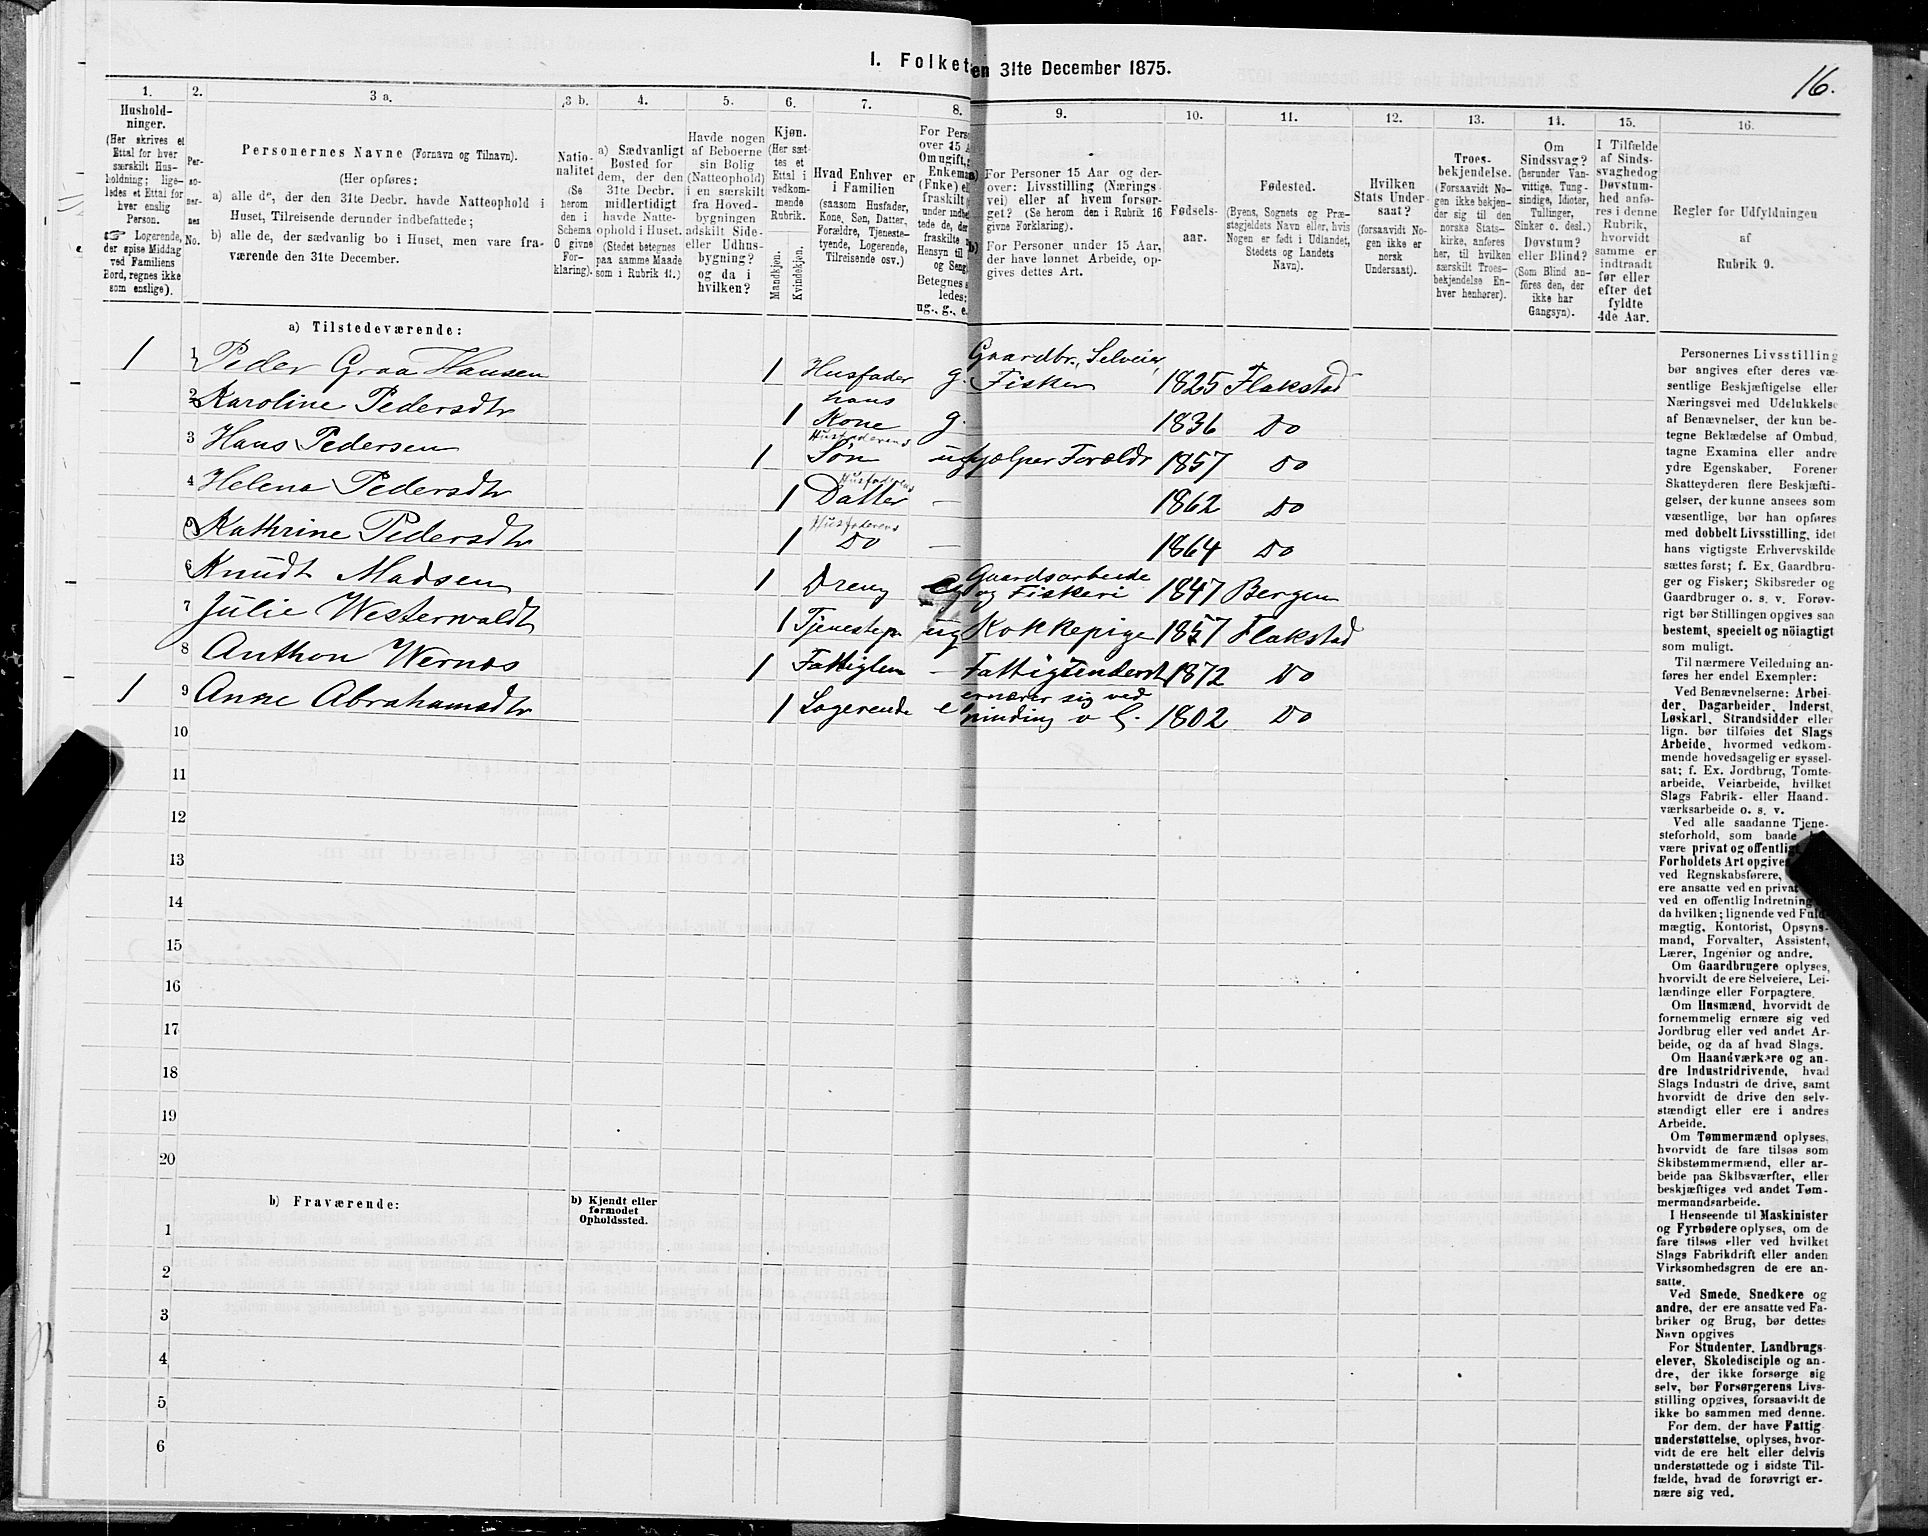 I. Folket en 31te December 1875.
16.
1.
Hushold-
ninger.
(Her skrives et
Ettal for hver
særskilt Hus-
holdning; lige-
ledes et Ettal for
hver enslig
Person.
Logerende,
der spise Middag
ved Familiens
Bord, regnes ikke
som enslige).
2.
Per-
so-
ner-
nes
No.
3 a.
Personernes Navne (Fornavn og Tilnavn).
(Her opføres:
a) alle de, der den 31te Decbr. havde Natteophold i
Huset, Tilreisende derunder indbefattede;
b) alle de, der sædvanlig bo i Huset, men vare fra-
værende den 31te December.
3 b.
Natio-
nalitet
(Se
herom
den i
Schema
O givne
For-
klaring).
4.
a) Sædvanligt
Bosted for
dem, der den
31te Decbr.
midlertidigt
havde Natte-
ophold i Huset.
(Stedet betegnes
paa samme Maade
som i Rubrik 11.)
5.
Havde nogen
af Beboerne
sin Bolig
(Natteophold)
i en særskilt
fra Hoved-
bygningen
adskilt Side-
eller Udhus-
bygning?
og da i
hvilken?
6.
Kjøn.
(Her sæt-
tes et
Ettal i
vedkom-
mende
Rubrik.
Mandkjøn.
Kvindekjøn.
7.
Hvad Enhver er
i Familien
(saasom Husfader,
Kone, Søn, Datter,
Forældre, Tjeneste-
tyende, Logerende,
Tilreisende osv.)
8.
For Pers
over 15 A
Om ugift,
Enkema
(Enke) el
fraskilt
under indbe
tede de, de
fraskilte
Hensyn til
og Seng
Betegnes s
ledes:
ug., g., e.
9.
a) For Personer 15 Aar og der-
over: Livsstilling (Nærings-
vei) eller af hvem forsør-
get? (Se herom den i Rubrik 16
givne Forklaring).
b) For Personer under 15 Aar,
der have lønnet Arbeide, op-
gives dettes Art.
10.
Fødsels-
aar.
11.
Fødested.
(Byens, Sognets og Præ-
stegjeldets Navn eller, hvis
Nogen er født i Udlandet,
Stedets og Landets
Navn).
12.
Hvilken
Stats Under-
saat?
(forsaavidt No-
gen ikke er
norsk
Undersaat).
13.
Troes-
bekjendelse.
(Forsaavidt No-
gen ikke bekjen-
der sig til den
norske Stats-
kirke, anføres
her, til hvilken
særskilt Troes-
bekjendelse En-
hver henhører).
14.
Om
Sindssvag?
(herunder Van-
vittige, Tung-
sindige, Idioter,
Tullinger,
Sinker o. desl.)
Døvstum?
eller Blind?
(Som Blind an-
føres den, der
ikke har
Gangsyn).
15.
I Tilfælde
af Sinds-
svaghed og
Døvstum-
hed anfø-
res i denne
Rubrik,
hvorvidt
samme er
indtraadt
før eller
efter det
fyldte
4de Aar.
16.
Regler for Udfyldningen
af
Rubrik 9.
a) Tilstedeværende:
1 1 Peder Graa Hansen 1 Husfader g. Gaardbr., Selveier,
Fisker 1825 Flakstad
2 Karoline Pedersdtr 1 hans
Kone g. 1836 Do
3 Hans Pedersen 1 Husfaderens
Søn ug hjælper Forældr 1857 Do
4 Helena Pedersdtr 1 Husfaderens
Datter - 1862 Do
5 Kathrine Pedersdtr 1 Husfaderens
Do - 1864 Do
6 Knudt Madsen 1 Dreng Gaardsarbeide
og Fiskeri 1847 Bergen
7 Julie Westerwaldt 1 Tjenestep ug Kokkepige 1857 Flakstad
8 Anthon Wernos 1 Fattiglem - Fattigunderst 1872 Do
1 9 Anne Abrahamsdtr 1 Logerende e ernærer sig ved
1802 Do
10
11
12
13
14
15
16
17
18
19
20
b) Fraværende:
b) Kjendt eller
formodet
Opholdssted.
1
2
3
4
5
6
Personernes Livsstilling
bør angives efter deres væ-
sentlige Beskjæftigelse eller
Næringsvei med Udelukkelse
af Benævnelser, der kun be-
tegne Beklædelse af Ombud,
tagne Examina eller andre
ydre Egenskaber. Forener
Skatteyderen flere Beskjæfti-
gelser, der kunne ansees som
væsentlige, bør han opføres
med dobbelt Livsstilling, idet
hans vigtigste Erhvervskilde
sættes først; f. Ex. Gaardbru-
ger og Fisker; Skibsreder og
Gaardbruger o. s. v. Forøv-
rigt bør Stillingen opgives saa
bestemt, specielt og nöiagtigt
som muligt.
Til nærmere Veiledning an-
føres her endel Exempler:
Ved Benævnelserne: Arbei-
der, Dagarbeider, Inderst,
Løskarl, Strandsidder eller
lign. bør tilføies det Slags
Arbeide, hvormed vedkom-
mende hovedsagelig er syssel-
sat; f. Ex. Jordbrug, Tomte-
arbeide, Veiarbeide, hvilket
Slags Fabrik- eller Haand-
værksarbeide o. s. v.
Ved alle saadanne Tjene-
steforhold, som baade
være privat og offentlig
Forholdets Art opgives
ved Regnskabsførere,
ere ansatte ved en privat
ved en offentlig Indretning
da hvilken; lignende ved Fuld-
mægtig, Kontorist, Opsyns-
mand, Forvalter, Assistent,
Lærer, Ingeniør og andre.
Om Gaardbrugere oplyses,
hvorvidt de ere Selveiere, Lei-
lændinge eller Forpagtere.
Om Husmænd, hvorvidt de
fornemmelig ernære sig ved
Jordbrug eller ved andet Ar-
beide, og da af hvad Slags.
Om Haandværkere og an-
dre Industridrivende, hvad
Slags Industri de drive, samt
hvorvidt de drive den selv-
stændigt eller ere i andres
Arbeide.
Om Tømmermænd oplyses,
hvorvidt de fare tilsøs som
Skibstømmermænd, eller ar-
beide paa Skibsværfter, eller
beskjæftiges ved andet Tøm-
mermandsarbeide.
I Henseende til Maskinister
og Fyrbødere oplyses, om de
fare tilsøs eller ved hvilket
Slags Fabrikdrift eller anden
Virksomhedsgren de ere an-
satte.
Ved Smede, Snedkere og
andre, der ere ansatte ved Fa-
briker og Brug, bør dettes
Navn opgives
For Studenter, Landbrugs-
elever, Skoledisciple og an-
dre, der ikke forsørge sig
selv, bør Forsørgerens Livs-
stilling opgives, forsaavidt de
ikke bo sammen med denne.
For dem, der have Fattig-
understøttelse, oplyses, hvor-
vidt de ere helt eller delvis
understøttede og i sidste Til-
fælde, hvad de forøvrigt er-
nære sig ved.